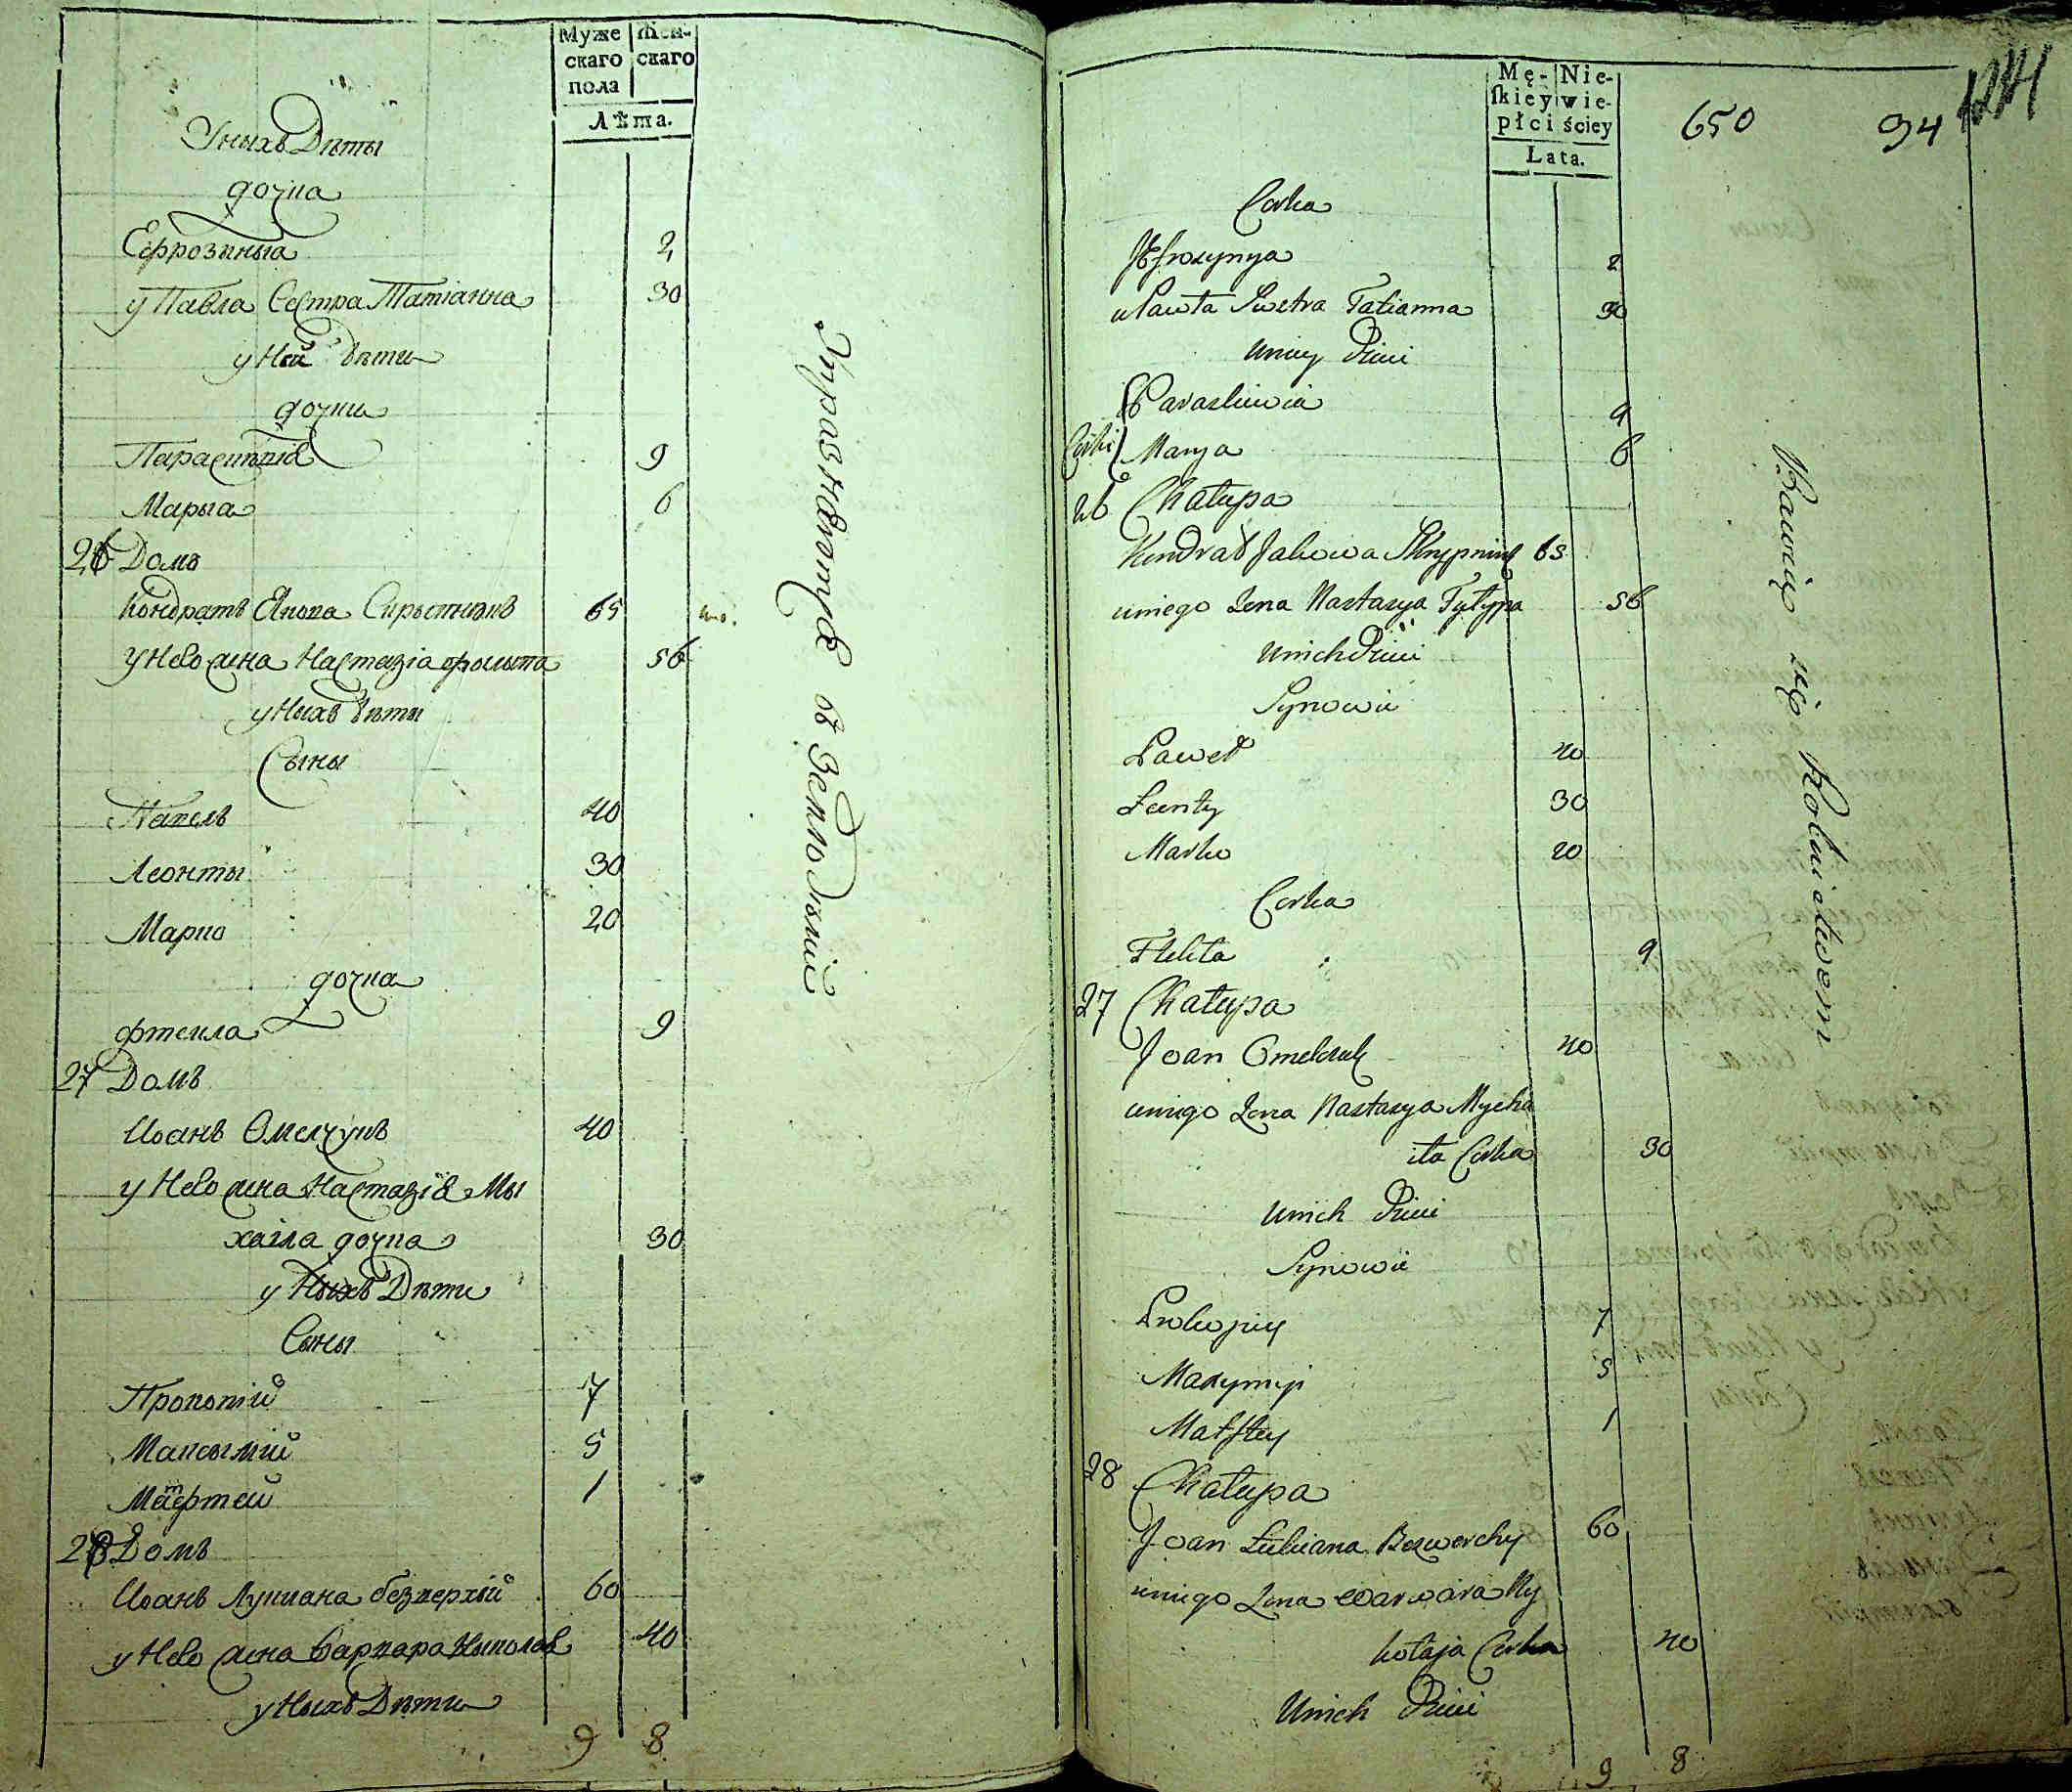 Муже Жен-
скаго скаго
пола
Лѣта.
Уныхъ Дѣты
дочка
Ефрозыныа 2
у Павла Сестра Татіанна 30
у Ней дѣти
дочки
Параскѣвіа 9
Марыа 6
26 Домъ
Кондратъ Якова Скрыпникъ 65
у Него жена Настазіа Филыпа 56
у Ныхъ дѣты
Сыны
Павелъ 40
Леонты 30
Марко 20
дочка
Фтекла 9
27 Домъ
Иоанъ Омелчукъ 40
у Него жена Настазіа Мы
хаіла дочка 30
у Ныхъ Дѣти
Сыны
Прокопій 7
Максымій 5
Матфтей 1
28 Домъ
Иоанъ Лукиана безверхій 60
у Него жена Варвара Ныколае 40
у Ныхъ Дѣти
9 8
Упражняютъся въ Земледѣліи
Mę- Nie-
ſkiey wie-
płci ściey
Lata.
650 94
Corka
Jefrozynya 2
u Pawła Siostra Tatianna 30
u niey Dzieci
Paraskiewia 9
Corki Marya 6
26 Chałupa
Kondrat Jakowa Skrypnik 65
u niego Zona Nastasya Fyłypa 56
u nich Dzieci
Synowie
Paweł 40
Leonty 30
Marko 20
Corka
Ftekła 9
27 Chałupa
Joan Omelczuk 40
u niego Zona Nastasya Mycha
iła Corka 30
u nich Dzieci
Synowie
Prokopiy 7
Maxymiy 5
Matftey 1
28 Chałupa
Joan Łukiana Bezwerchy 60
u niego Zona Warwara Ny
kołaja Corka 40
U nich Dzieci
9 8
Bawią się Rolnictwem